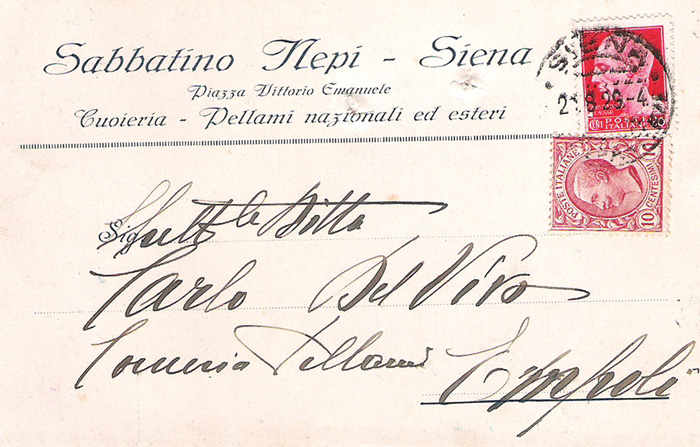 Sabbatino Nepi - Siena
Piazza Vittorio Emanuele
Cuoieria - Pellami nazionali ed esteri
SIENA
21.8.29.-4
POSTE ITALIANE
10
CENTESIMI
Sig. Ditta
Carlo Del Vivo
Conceria Pellami
Empoli